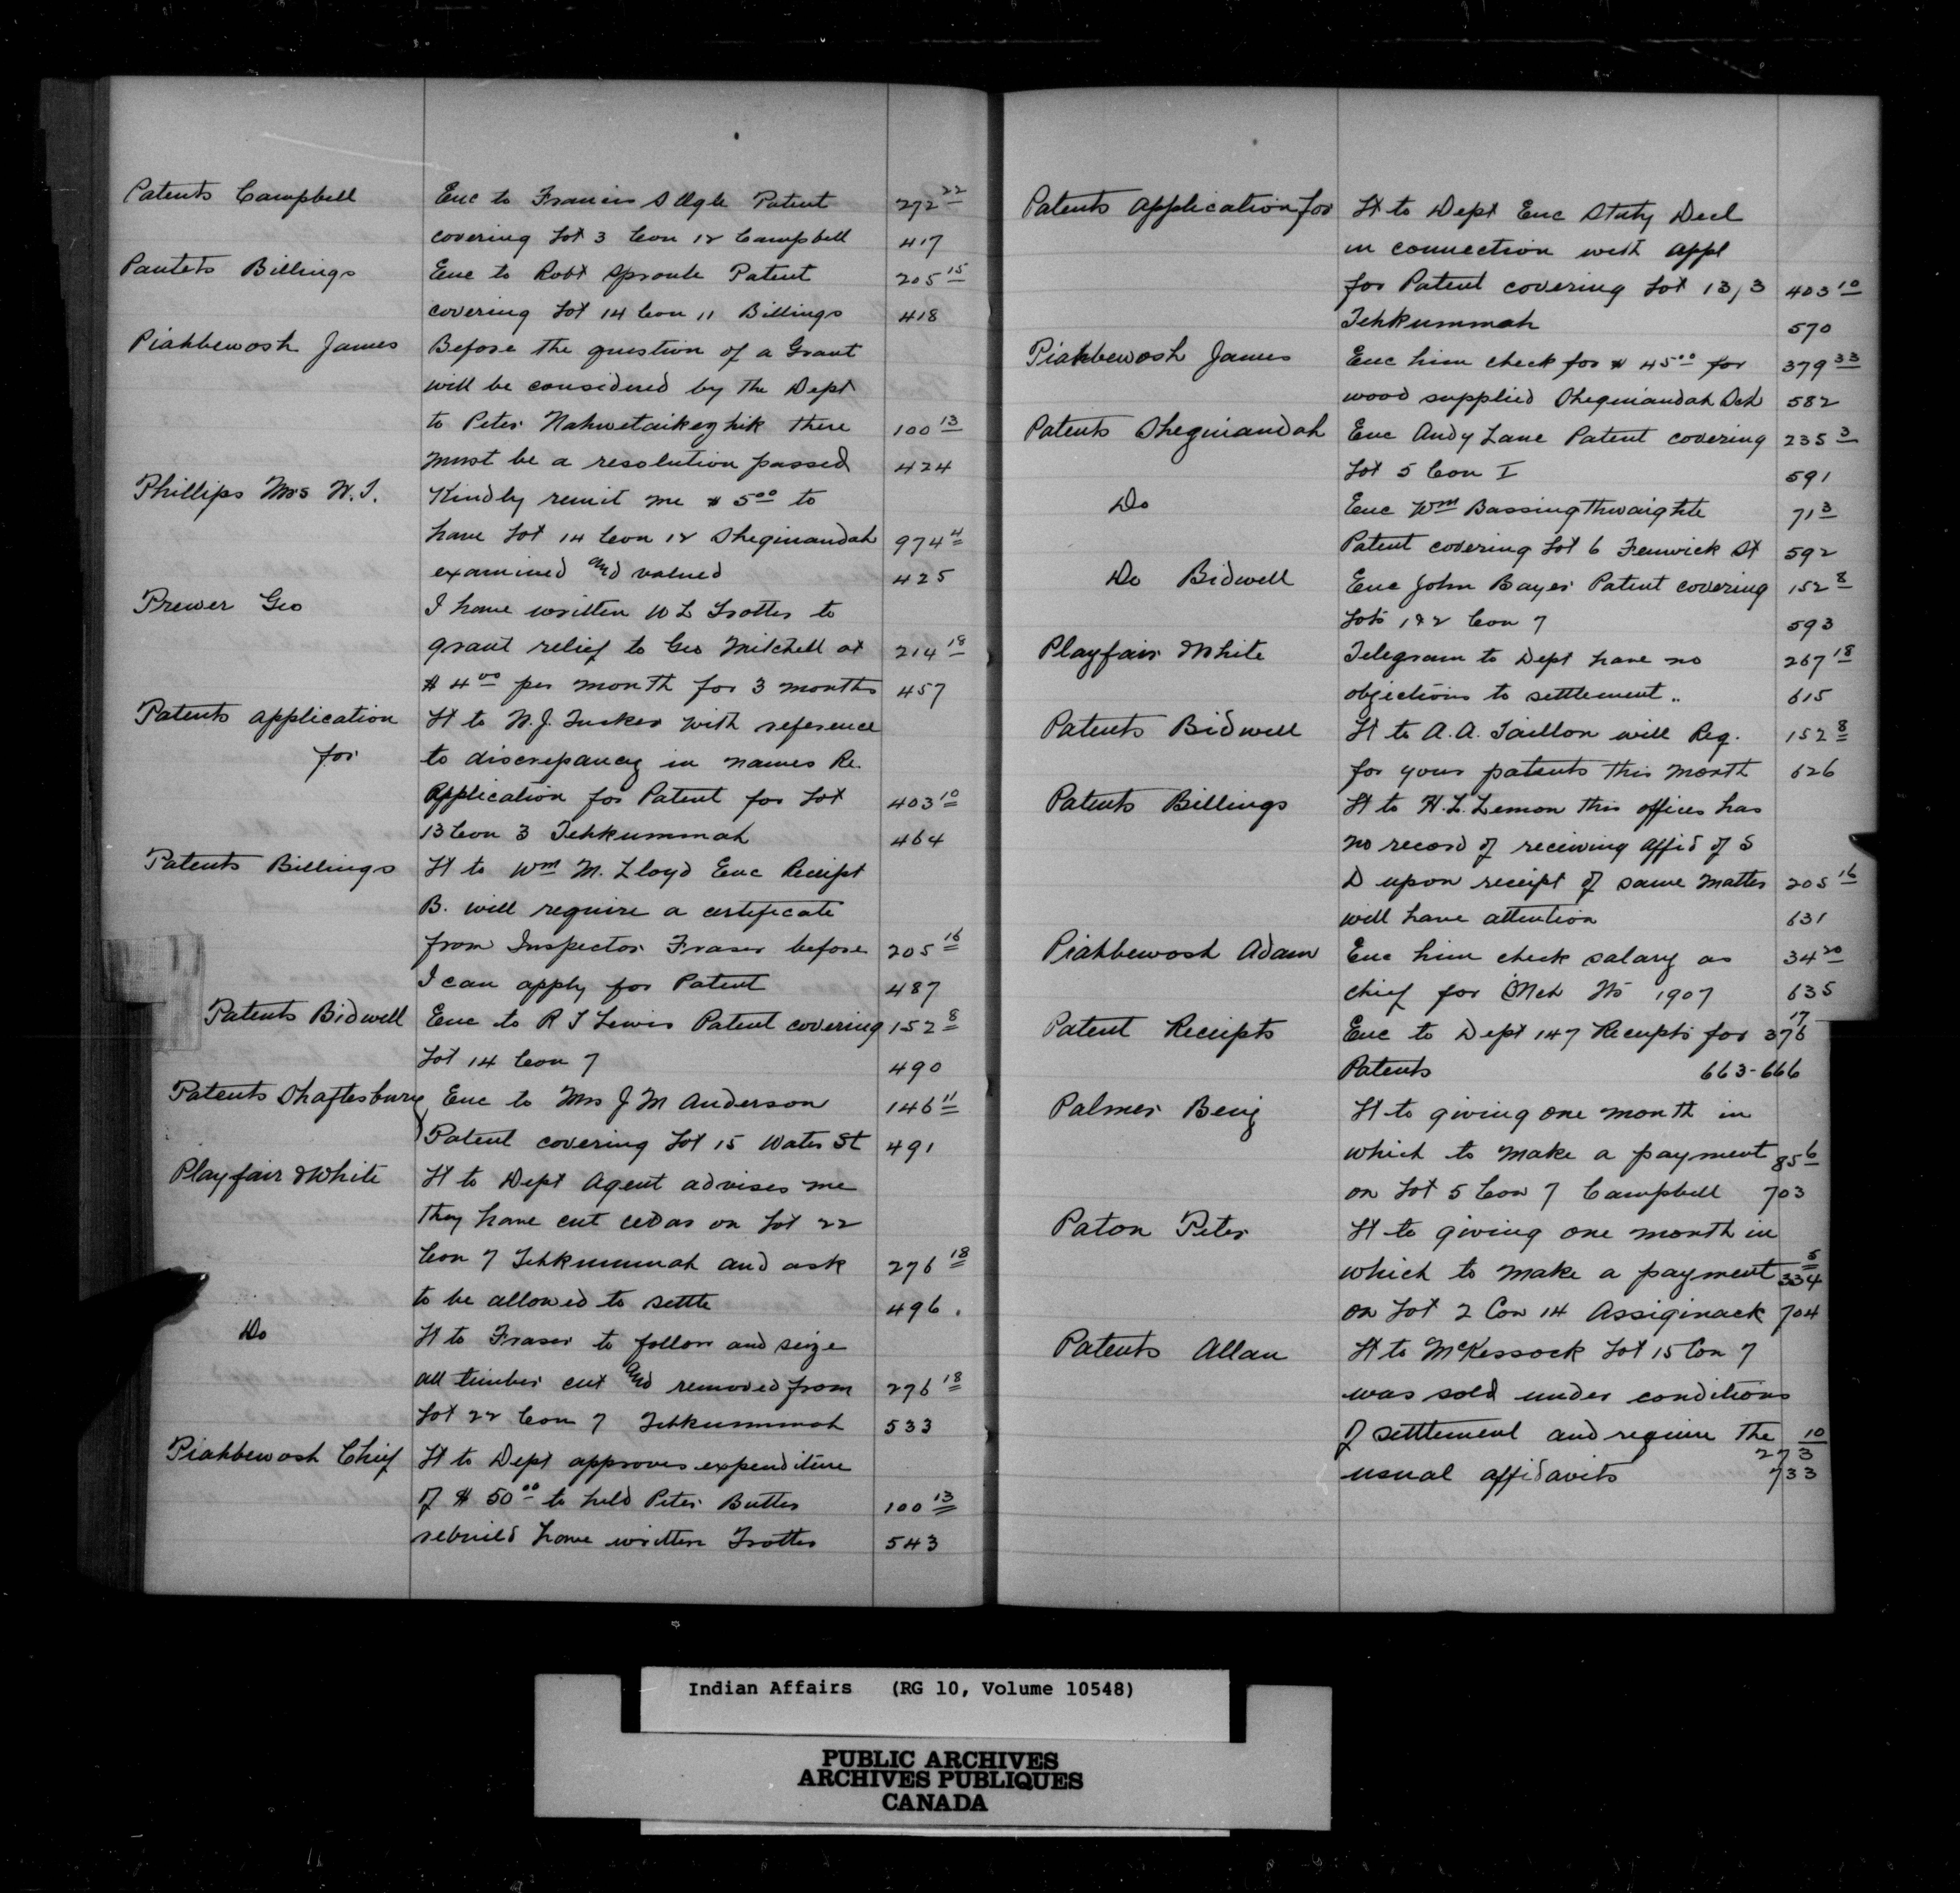 Patents Campbell Enc to Francis Slegh Patent 272 22
covering Lot 3 Con 12 Campbell 417
Pantets Billings Enc to Robt Sproule Patent 205 15
covering Lot 14 Con 11 Billings 418
Piahbewosh James Before the question of a Grant
will be considered by the Dept
to Peter Nahwetaikezhik there 100 13
must be a resolution passed 424
Phillips Mrs W. J. Kindly remit me $5 00 to
have Lot 14 Con 12 Sheguiandah 974 4
examined and valued 425
Prewer Geo I have written W L Trotter to
grant relief to Geo Mitchell at 214 18
$4 00 per month for 3 months 457
Patents application Lt to N.J. Tucker with reference
for to discrepancy in names Re.
Application for Patent for Lot 403 10
13 Con 3 Tehkummah 464
Patents Billings Lt to Wm M. Lloyd Enc Receipt
B. will require a certificate
from Inspector Fraser before 205 16
I can apply for Patent 487
Patents Bidwell Enc to R J Lewis Patent covering 152 8
Lot 14 Con 7 490
Patents Shaftesbury Enc to Mrs J M Anderson 146 11
Patent covering Lot 15 Water St 491
Playfair & White Lt to Dept Agent advises me
they have cut cedar on Lot 22
Con 7 Tehkummah and ask 276 18
to be allowed to settle 496.
Do Lt to Fraser to follow and seize
all timber cut and removed from 276 18
Lot 22 Con 7 Tehkummah 533
Piahbewosh Chief Lt to Dept approves expenditure
of $50 00 to held Peter Butter 100 13
rebuild have written Trotter 543
Patents Application for Lt to Dept Enc Statty Decl
in connection with appl
for Patent covering Lot 13/3 403 10
Tehkummah 570
Piahbewosh James Enc him check for $45 00 for 379 33
wood supplied Sheguiandah Sch 582
Patents Sheguiandah Enc Andy Lane Patent covering 235 3
Lot 5 Con I 591
Do Enc Wm Bassingthwaighte 71 3
Patent covering Lot 6 Fenwick St 592
Do Bidwell Enc John Bayer Patent covering 152 8
Lots 1 & 2 Con 7 593
Playfair & White Telegram to Dept have no 267 18
objections to settlement .. 615
Patents Bidwell Lt to A. A. Taillon will Req. 152 8
for your patents this month 626
Patents Billings Lt to H. L. Lemon this offices has
no record of receiving Affid of S
D upon receipt of same matter 205 16
will have attention 631
Piahbewosh Adam Enc him check salary as 34 20
chief for Mch 1907 635
Patent Receipts Enc to Dept 147 Receipts for 376 17
Patents 663-666
Palmer Benj Lt to giving one month in
which to make a payment 85 6
on Lot 5 Con 7 Campbell 703
Paton Peter Lt to giving one month in
which to make a payment 334 5
on Lot 2 Con 14 Assiginack 704
Patents Allan Lt to McKessock Lot 15 Con 7
was sold under conditions
of settlement and require the 10
273
usual affidavits 733
Indian Affairs (RG 10, Volume 10548)
PUBLIC ARCHIVES
ARCHIVES PUBLIQUES
CANADA